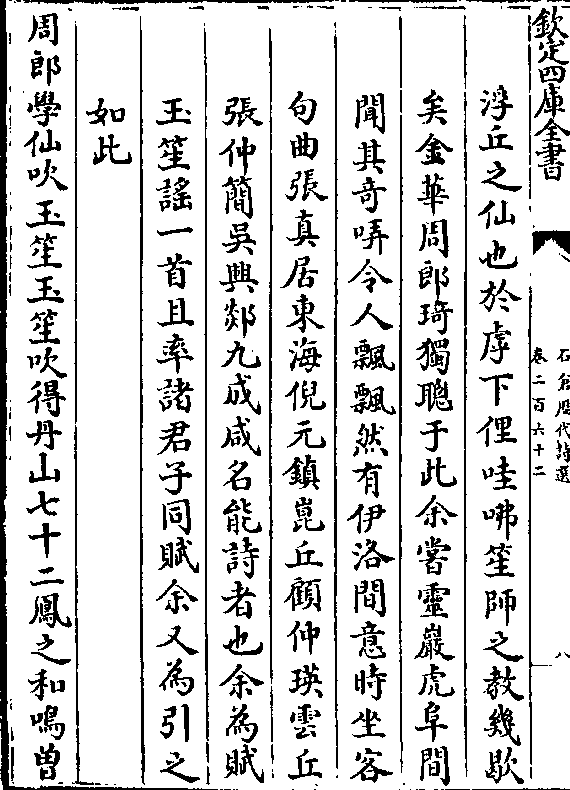 欽定四庫全書
石倉歷代詩選
卷二百六十二
八
浮丘之仙也於虖下俚哇咈笙師之教幾歇
矣金華周郎琦獨聰于此余嘗靈巖虎阜間
聞其奇哢令人飄飄然有伊洛間意時坐客
句曲張真居東海倪元鎮崑丘顧仲瑛雲丘
張仲簡吳興郯九成咸名能詩者也余為賦
玉笙謡一首且率諸君子同賦余又為引之
如此
周郎學仙吹玉笙玉笙吹得丹山七十二鳳之和鳴曽